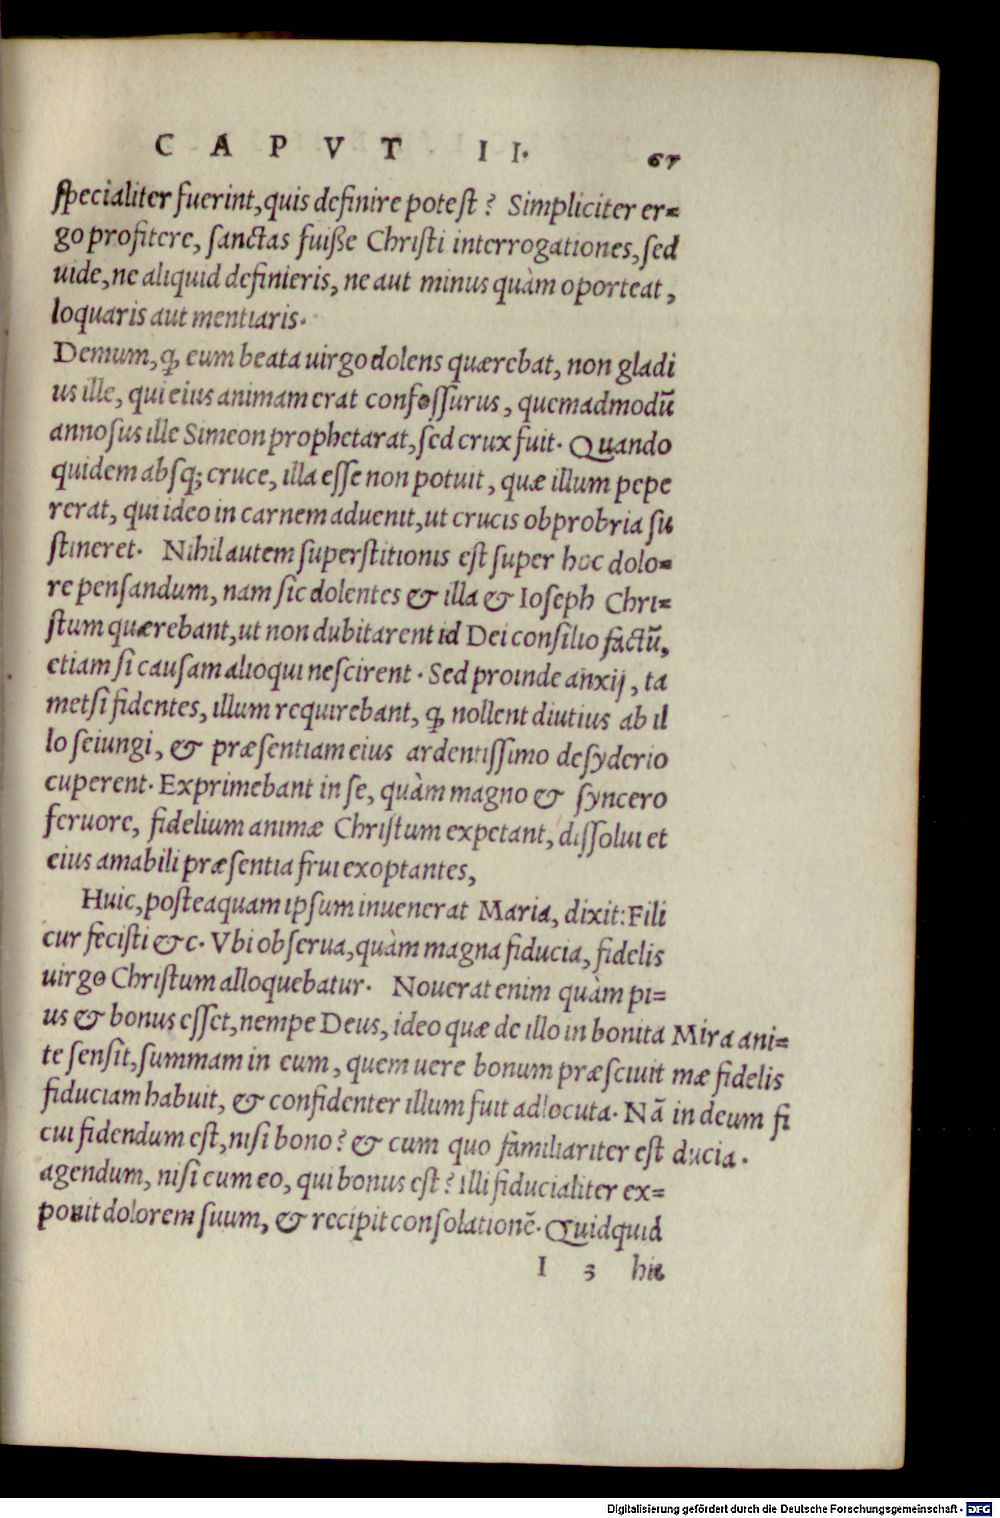 CAPVT II. 67
specialiter fuerint, quis definire potest? Simpliciter er=
go profitere, sanctas fuiße Christi interrogationes, sed
uide, ne aliquid definieris, ne aut minus quàm oporteat,
loquaris aut mentiaris.
Demum, ꝙ eum beata uirgo dolens quærebat, non gladi
us ille, qui eius animam erat confossurus, quemadmodū
annosus ille Simeon prophetarat, sed crux fuit. Quando
quidem absq; cruce, illa esse non potuit, quæ illum pepe
rerat, qui ideo in carnem aduenit, ut crucis obprobria su
stineret. Nihil autem superstitionis est super hoc dolo=
re pensandum, nam sic dolentes & illa & Ioseph Chri=
stum quærebant, ut non dubitarent id Dei consilio factū,
etiam si causam alioqui nescirent. Sed proinde anxij, ta
metsi fidentes, illum requirebant, ꝙ nollent diutius ab il
lo seiungi, & præsentiam eius ardentissimo desyderio
cuperent. Exprimebant in se, quàm magno & syncero
feruore, fidelium animæ Christum expetant, dissolui et
eius amabili præsentia frui exoptantes,
Huic, posteaquam ipsum inuenerat Maria, dixit: Fili
cur fecisti &c. Vbi obserua, quàm magna fiducia, fidelis
uirgo Christum alloquebatur. Nouerat enim quàm pi=
us & bonus esset, nempe Deus, ideo quæ de illo in bonita
te sensit, summam in eum, quem uere bonum præsciuit
fiduciam habuit, & confidenter illum fuit adlocuta. Nā
cui fidendum est, nisi bono? & cum quo familiariter est
agendum, nisi cum eo, qui bonus est? Illi fiducialiter ex=
ponit dolorem suum, & recipit consolationē. Quidquid
Mira ani=
mæ fidelis
in deum fi
ducia.
I 3 hic